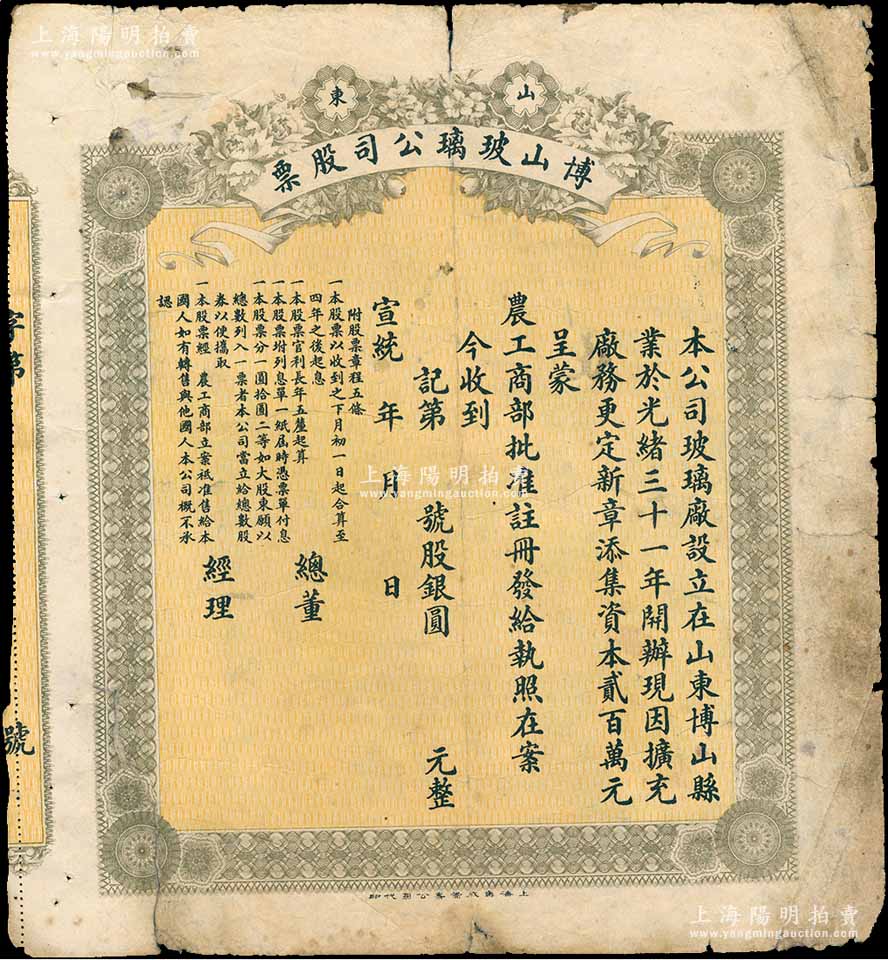 上海陽明拍賣
www.yangmingauction.com
山東
博山玻璃公司股票
本公司玻璃廠設立在山東博山縣
業於光緒三十一年開辦現因擴充
廠務更定新章添集資本貳百萬元
呈蒙
農工商部批准註冊發給執照在案
今收到
記第 號股銀圓 元整
宣統 年 月 日
附股票章程五條
一本股票以收到之下月初一日起合算至
四年之後起息
一本股票官利長年五釐起算
一本股票坿列息單一紙屆時憑票單付息
一本股票分一圓拾圓二等如大股東願以
總數列入一票者本公司當立給總數股
券以便攜取
一本股票經 農工商部立案祗准售給本
國人如有轉售與他國人本公司概不承
認
總董
經理
字第 號
上海陽明拍賣
www.yangmingauction.com
上海陽明拍賣
www.yangmingauction.com